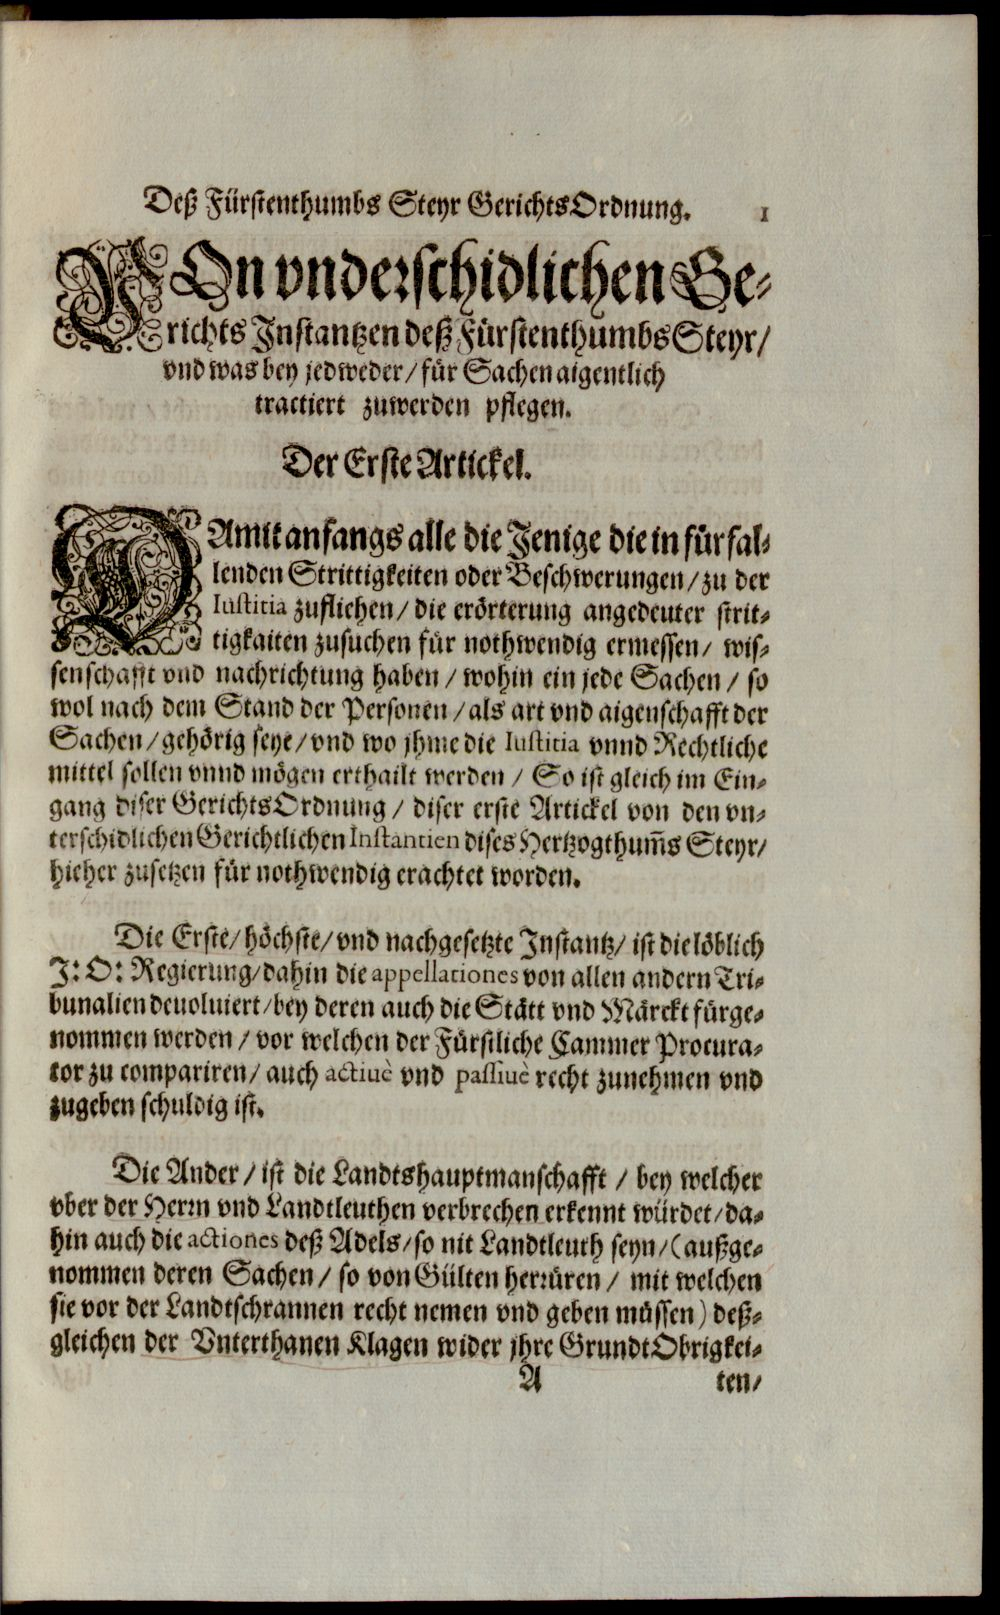 Deß Fürstenthumbs Steyr GerichtsOrdnung. 1
VOn vnderschidlichen Ge-
richts Instantzen deß Fürstenthumbs Steyr/
vnd was bey jedweder/ für Sachen aigentlich
tractiert zuwerden pflegen.
Der Erste Artickel.
DAmit anfangs alle die Jenige die in fürfal-
lenden Strittigkeiten oder Beschwerungen/ zu der
Iustitia zufliehen/ die erörterung angedeuter strit-
tigkaiten zusuchen für nothwendig ermessen/ wis-
senschafft vnd nachrichtung haben/ wohin ein jede Sachen/ so
wol nach dem Stand der Personen/ als art vnd aigenschafft der
Sachen/ gehörig seye/ vnd wo jhme die Iustitia vnnd Rechtliche
mittel sollen vnnd mögen erthailt werden/ So ist gleich im Ein-
gang diser GerichtsOrdnung/ diser erste Artickel von den vn-
terschidlichen Gerichtlichen Instantien dises Hertzogthum̃s Steyr/
hieher zusetzen für nothwendig erachtet worden.
Die Erste/ höchste/ vnd nachgesetzte Instantz/ ist die löblich
J: O: Regierung/ dahin die appellationes von allen andern Tri-
bunalien deuoluiert/ bey deren auch die Stätt vnd Märckt fürge-
nommen werden/ vor welchen der Fürstliche Cammer Procura-
tor zu compariren/ auch actiuè vnd passiuè recht zunehmen vnd
zugeben schuldig ist.
Die Ander/ ist die Landtshauptmanschafft/ bey welcher
vber der Herrn vnd Landtleuthen verbrechen erkennt würdet/ da-
hin auch die actiones deß Adels/ so nit Landtleuth seyn/ (außge-
nommen deren Sachen/ so von Gülten herrüren/ mit welchen
sie vor der Landtschrannen recht nemen vnd geben müssen) deß-
gleichen der Vnterthanen Klagen wider jhre GrundtObrigkei-
A ten/